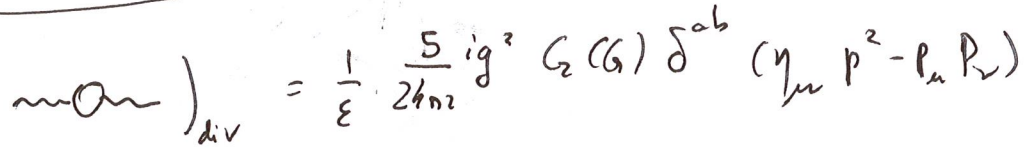 )_div = 1/ε · 5/24π² ig² C₂(G) δ^ab (η_μν p² - p_μ p_ν)